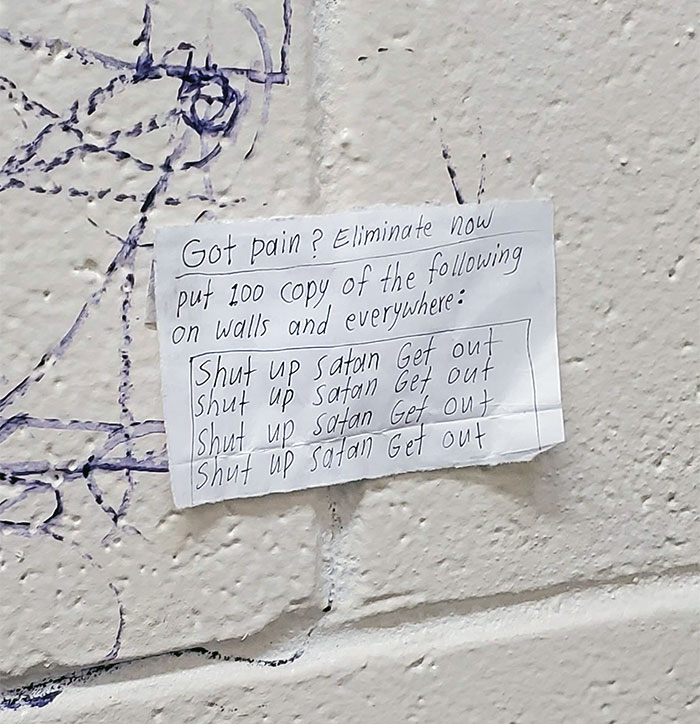 Got pain? Eliminate now
put 100 copy of the following
on walls and everywhere:
Shut up Satan Get out
Shut up Satan Get out
Shut up Satan Get out
Shut up Satan Get out